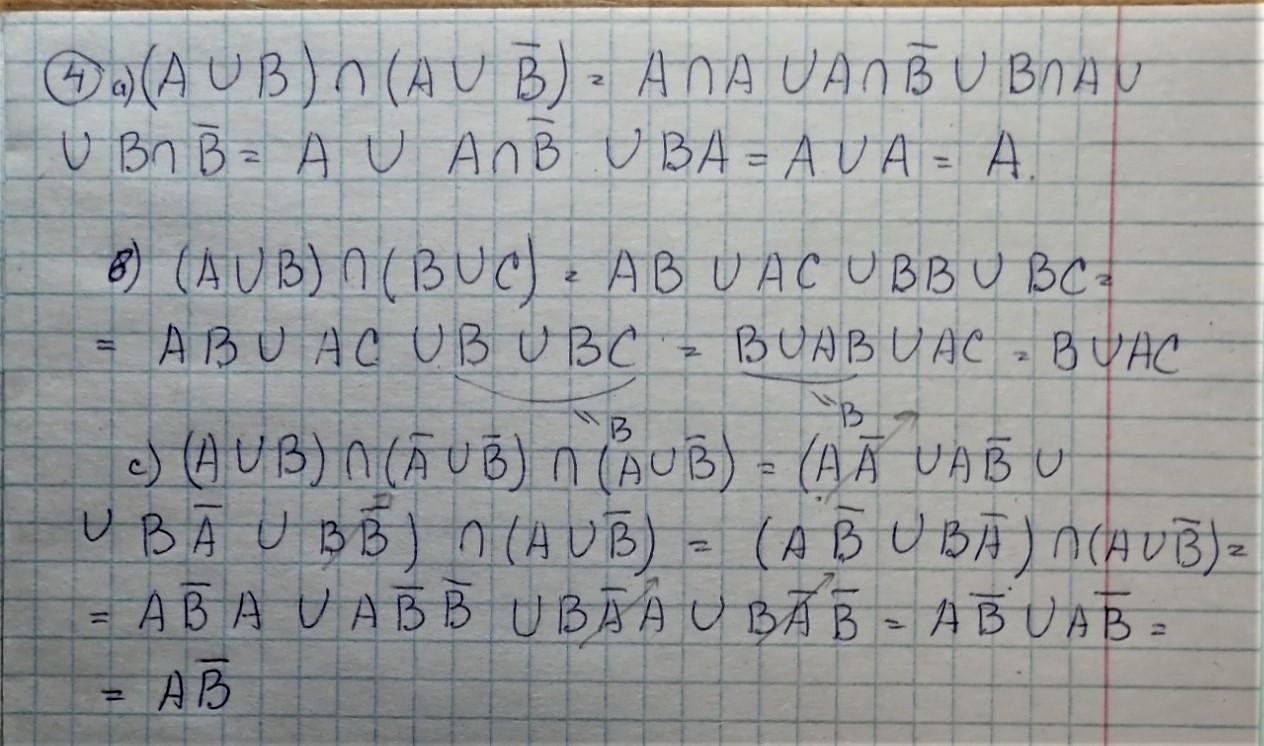 ④ а) (A ∪ B) ∩ (A ∪ B̅) = A∩A ∪ A∩B̅ ∪ B∩A ∪
∪ B∩B̅ = A ∪ A∩B̅ ∪ BA = A ∪ A = A.
в) (A∪B) ∩ (B∪C) = AB ∪ AC ∪ BB ∪ BC =
= AB ∪ AC ∪ B ∪ BC = B∪AB ∪ AC = B∪AC
"B "B
c) (A∪B) ∩ (A̅ ∪ B̅) ∩ (A∪B̅) = (AA̅ ∪ AB̅ ∪
∪ BA̅ ∪ BB̅) ∩ (A∪B̅) = (AB̅ ∪ BA̅) ∩ (A∪B̅) =
= AB̅A ∪ AB̅B̅ ∪ BA̅A ∪ BA̅B̅ = AB̅ ∪ AB̅ =
= AB̅